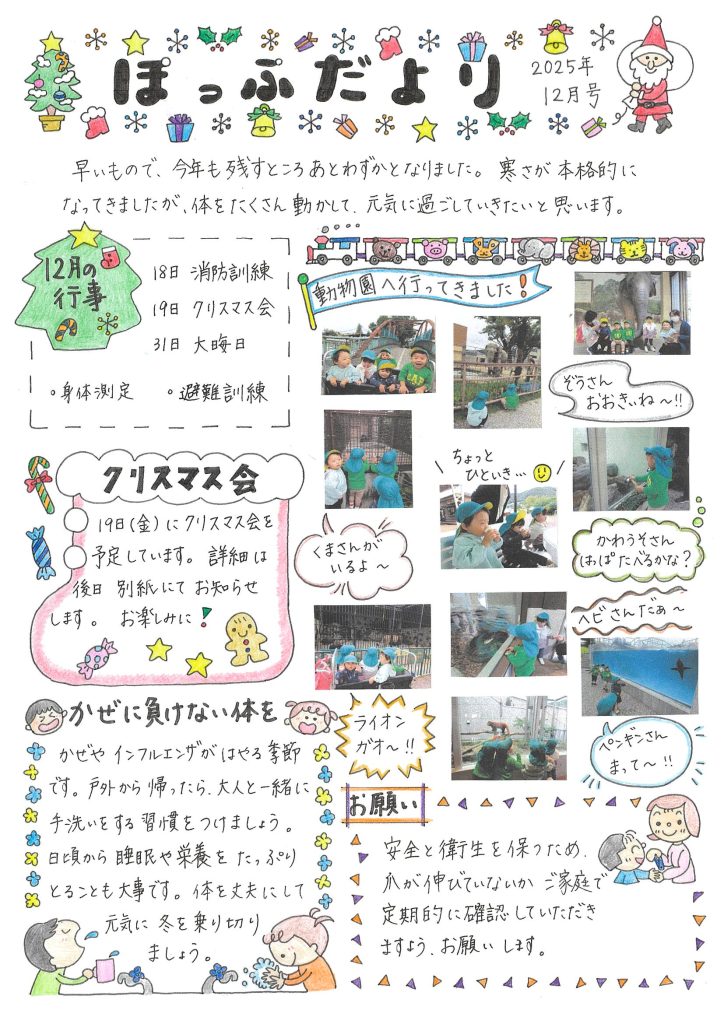 ぽっぷだより
2025年
12月号
早いもので、今年も残すところあとわずかとなりました。寒さが本格的に
なってきましたが、体をたくさん動かして、元気に過ごしていきたいと思います。
12月の
行事
18日 消防訓練
19日 クリスマス会
31日 大晦日
◦身体測定 ◦避難訓練
動物園へ行ってきました!
ぞうさん
おおきいね〜!!
ちょっと
ひといき…
くまさんが
いるよ〜
かわうそさん
はっぱたべるかな?
ヘビさんだぁ〜
ライオン
ガオ〜!!
ペンギンさん
まって〜!!
クリスマス会
19日(金)にクリスマス会を
予定しています。詳細は
後日別紙にてお知らせ
します。お楽しみに!
かぜに負けない体を
かぜやインフルエンザがはやる季節
です。戸外から帰ったら、大人と一緒に
手洗いをする習慣をつけましょう。
日頃から睡眠や栄養をたっぷり
とることも大事です。体を丈夫にして
元気に冬を乗り切り
ましょう。
お願い
安全と衛生を保つため、
爪が伸びていないかご家庭で
定期的に確認していただき
ますよう、お願いします。